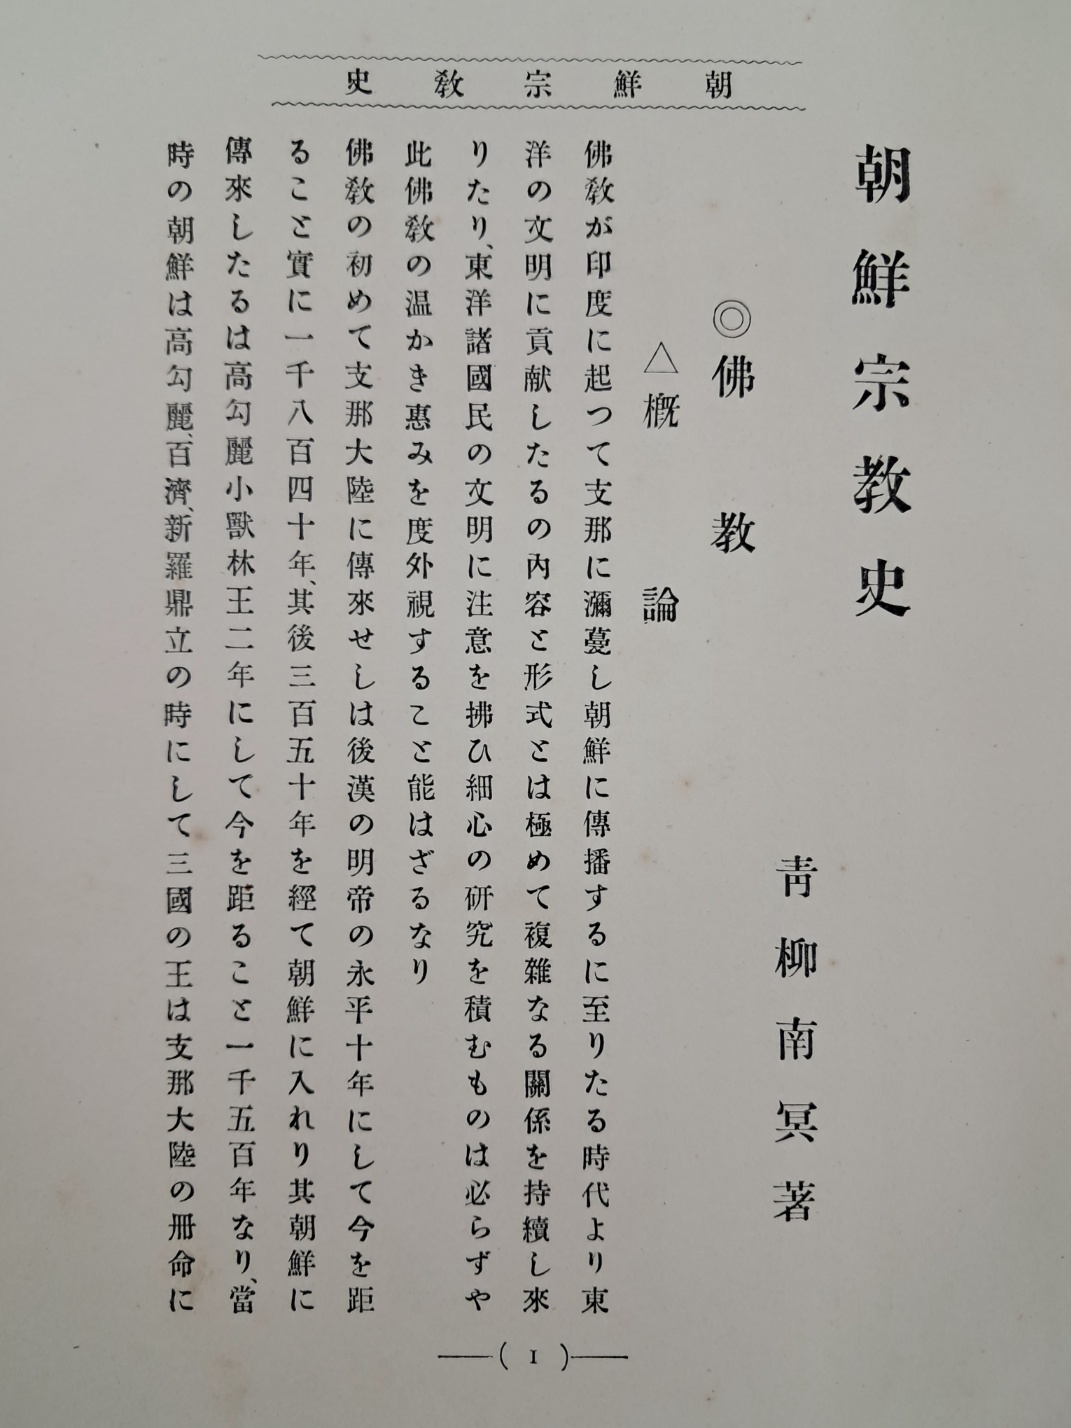 朝鮮宗教史
朝鮮宗教史
青柳南冥著
◎佛教
△概論
佛教が印度に起つて支那に瀰蔓し朝鮮に傳播するに至りたる時代より東
洋の文明に貢献したるの内容と形式とは極めて複雜なる關係を持續し來
りたり、東洋諸國民の文明に注意を拂ひ細心の研究を積むものは必らずや
此佛教の温かき惠みを度外視すること能はざるなり
佛教の初めて支那大陸に傳來せしは後漢の明帝の永平十年にして今を距
ること實に一千八百四十年、其後三百五十年を經て朝鮮に入れり其朝鮮に
傳來したるは高勾麗小獸林王二年にして今を距ること一千五百年なり、當
時の朝鮮は高勾麗、百濟、新羅鼎立の時にして三國の王は支那大陸の冊命に
( 1 )